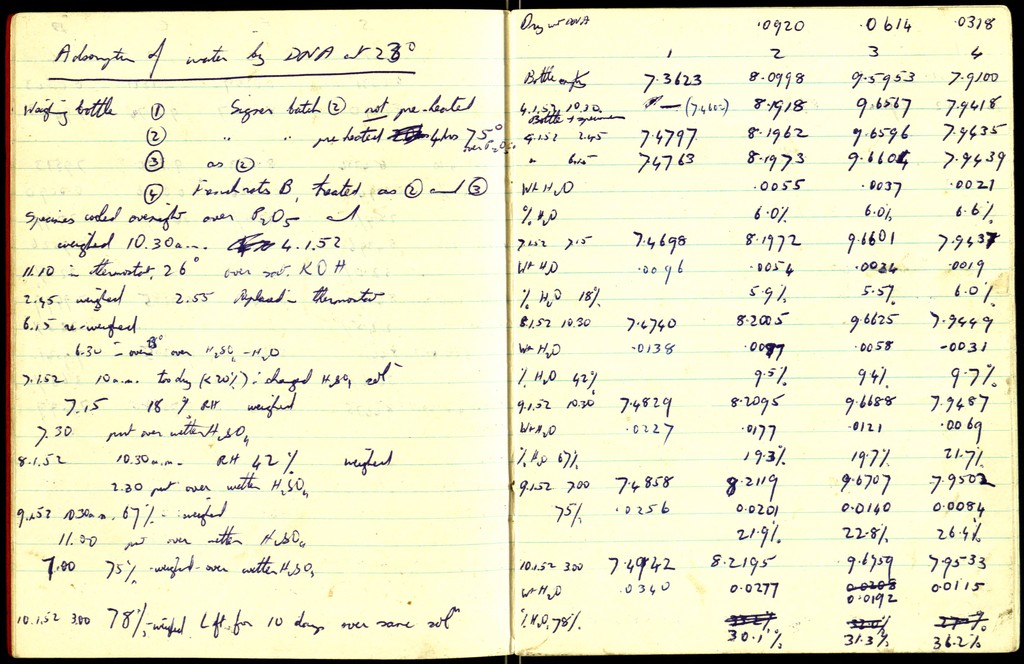 Adsorption of water by DNA at 23°
Weighing bottle ① Signer batch ② not pre-heated
② " " preheated 4 hrs 75° over P₂O₅
③ as ②
④ Franchrats B, treated as ② and ③
Specimens cooled overnight over P₂O₅ and
weighed 10.30 a.m. 4.1.52
11.10 in thermostat, 26° over sat. KOH
2.45 weighed 2.55 Replaced in thermostat
6.15 re-weighed
6.30 in oven over H₂SO₄-H₂O
7.1.52 10 a.m. too dry (<20%) ∴ changed H₂SO₄ solⁿ
7.15 18% RH weighed
7.30 put over wetter H₂SO₄
8.1.52 10.30 a.m. RH 42% weighed
2.30 put over wetter H₂SO₄
9.1.52 10.30 a.m. 67% - weighed
11.00 put over wetter H₂SO₄
7.00 75% - weighed - over wetter H₂SO₄
10.1.52 3.00 78% - weighed Left for 10 days over same solⁿ
Dry wt DNA .0920 .0614 .0318
1 2 3 4
Bottle empty 7.3623 8.0998 9.5953 7.9100
4.1.52 10.30 — (7.4602) 8.1918 9.6567 7.9418
Bottle + specimen
4.1.52 2.45 7.4797 8.1962 9.6596 7.9435
" 6.15 7.4763 8.1973 9.6604 7.9439
Wt H₂O .0055 .0037 .0021
% H₂O 6.0% 6.0% 6.6%
7.1.52 7.15 7.4698 8.1972 9.6601 7.9437
Wt H₂O .0096 .0054 .0034 .0019
% H₂O 18% 5.9% 5.5% 6.0%
8.1.52 10.30 7.4740 8.2005 9.6625 7.9449
Wt H₂O .0138 .0087 .0058 .0031
% H₂O 42% 9.5% 9.4% 9.7%
9.1.52 10.30 7.4829 8.2095 9.6688 7.9487
Wt H₂O .0227 .0177 .0121 .0069
% H₂O 67% 19.3% 19.7% 21.7%
9.1.52 7.00 7.4858 8.2119 9.6707 7.9502
75% .0256 0.0201 0.0140 0.0084
21.9% 22.8% 26.4%
10.1.52 3.00 7.4942 8.2195 9.6759 7.9533
Wt H₂O .0340 0.0277 0.0208 0.0115
0.0192
% H₂O, 78%
30.1% 31.3% 36.2%